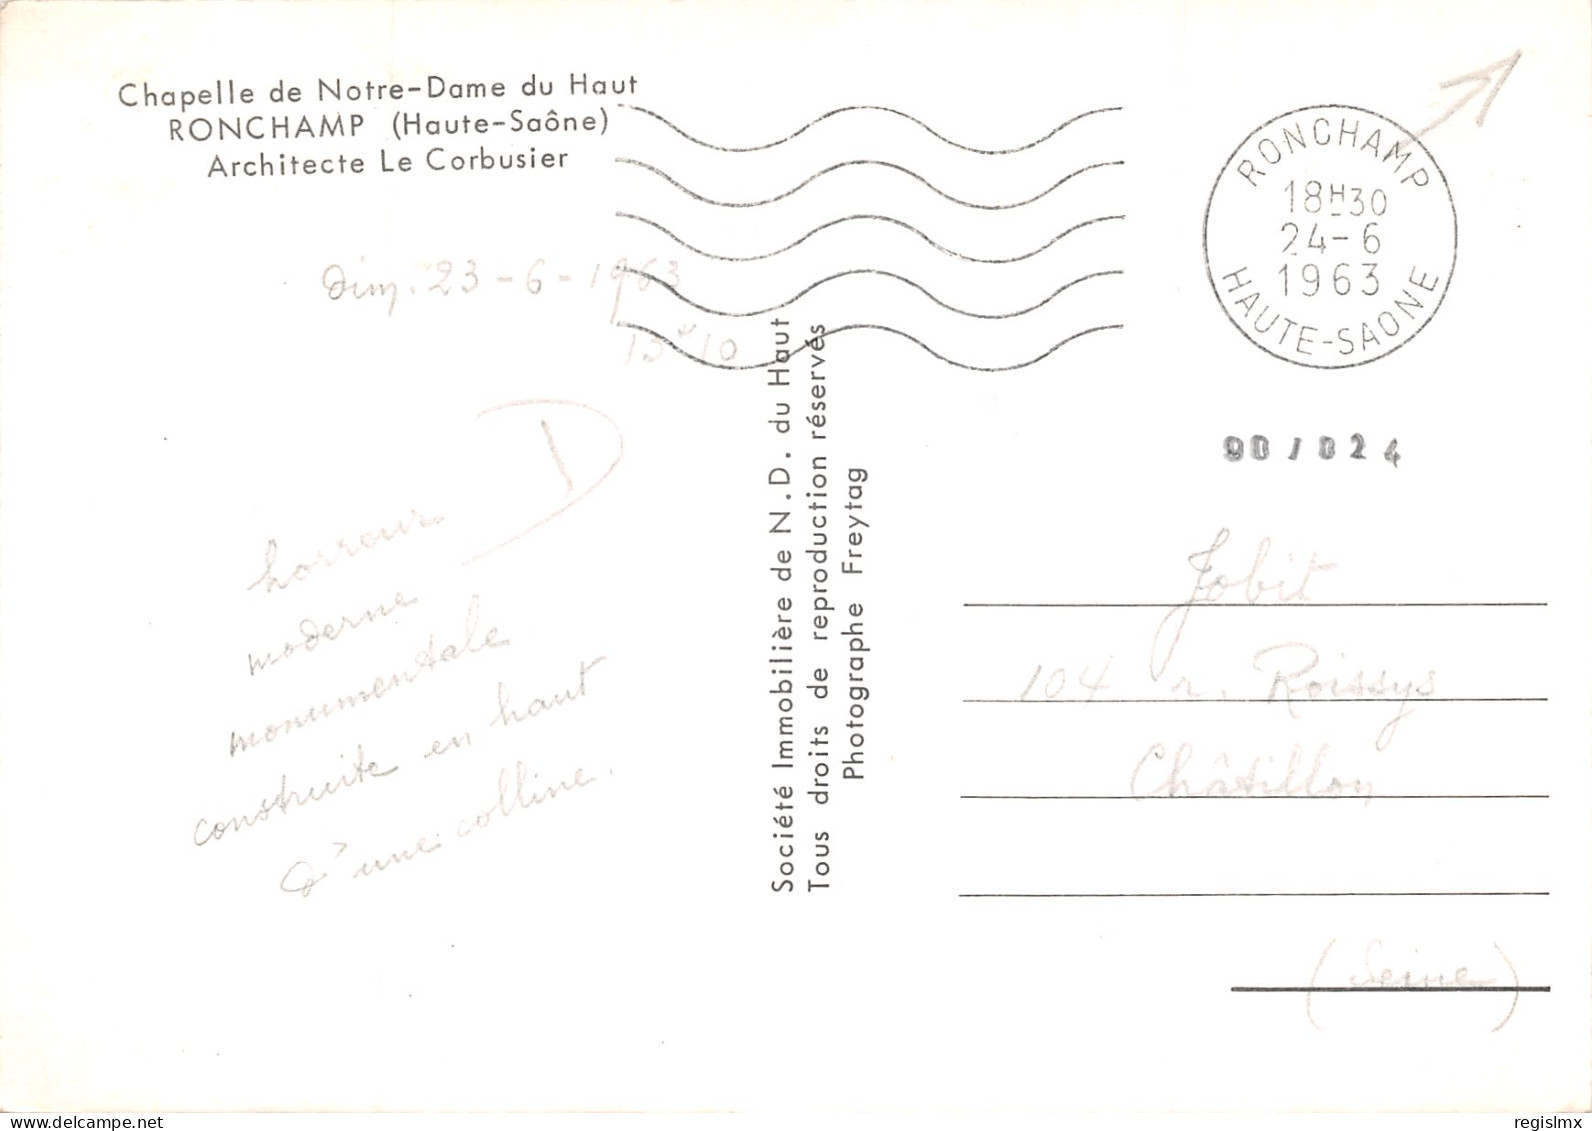 Chapelle de Notre-Dame du Haut
RONCHAMP (Haute-Saône)
Architecte Le Corbusier
RONCHAMP
18H30
24-6
1963
HAUTE-SAONE
dim. 23-6-1963
15 10
90/024
horreur
moderne
monumentale
construite en haut
d'une colline.
Société Immobilière de N.D. du Haut
Tous droits de reproduction réservés
Photographe Freytag
Jobit
104 r. Roissys
Châtillon
(Seine)
delcampe.net
regislmx